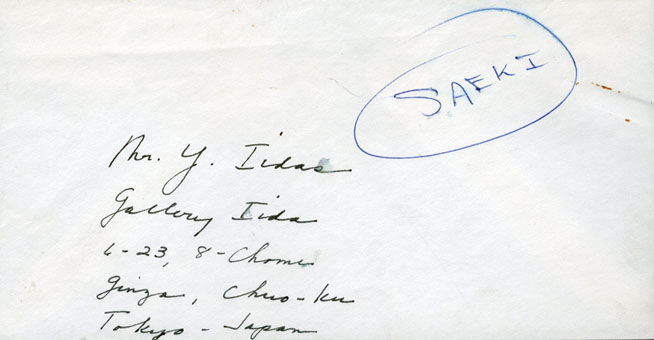 SAEKI
Mr. Y. Iida
Gallery Iida
6-23, 8-Chome
Ginza, Chuo-ku
Tokyo - Japan